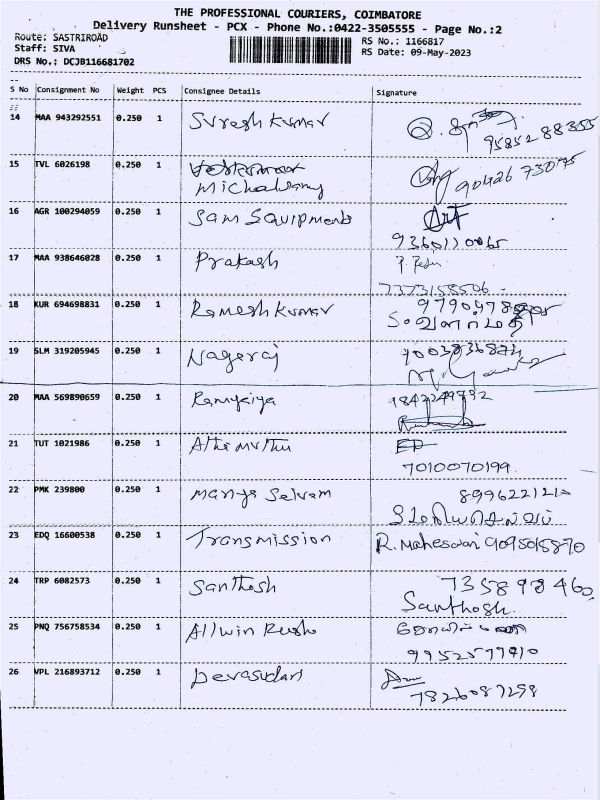 THE PROFESSIONAL COURIERS, COIMBATORE
Delivery Runsheet - PCX - Phone No.:0422-3505555 - Page No.:2
Route: SASTRIROAD
Staff: SIVA
DRS No.: DCJB116681702
RS No.: 1166817
RS Date: 09-May-2023
S No Consignment No Weight PCS Consignee Details Signature
14 MAA 943292551 0.250 1 Suresh Kumar
9585288355
15 TVL 6026198 0.250 1
73075
16 AGR 100294059 0.250 1 Sam
9360110065
17 MAA 938646028 0.250 1 Prakash
7373158506
18 KUR 694698831 0.250 1 Ramesh Kumar
S. வளர்மதி
19 SLM 319205945 0.250 1 Nageraj
20 MAA 569890659 0.250 1
21 TUT 1021986 0.250 1 Athi Muthu
7010070199
22 PMK 239800 0.250 1 Selvam
23 EDQ 16600538 0.250 1 Transmission R. Maheswari 9095015870
24 TRP 6082573 0.250 1 Santhosh 735898460
Santhosh.
25 PNQ 756758534 0.250 1 Allwin
9952577910
26 VPL 216893712 0.250 1
7826087298